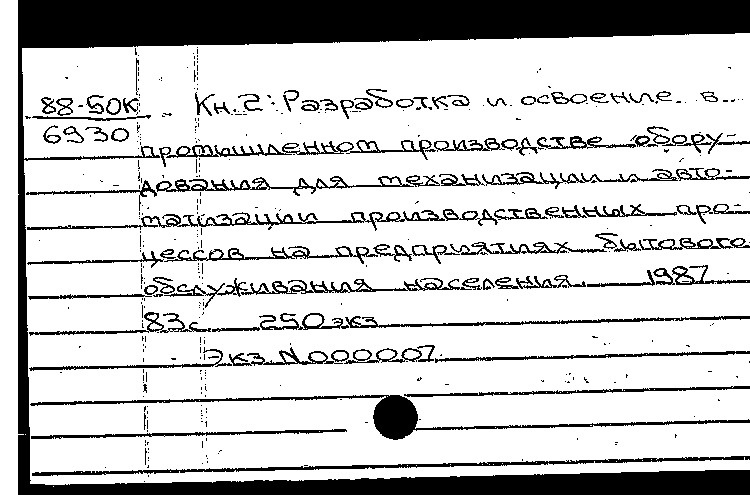 88-50К
6930
Кн. 2: Разработка и освоение в
промышленном производстве обору-
дования для механизации и авто-
матизации производственных про-
цессов на предприятиях бытового
обслуживания населения. 1987
83с 250 экз
Экз N 000007.